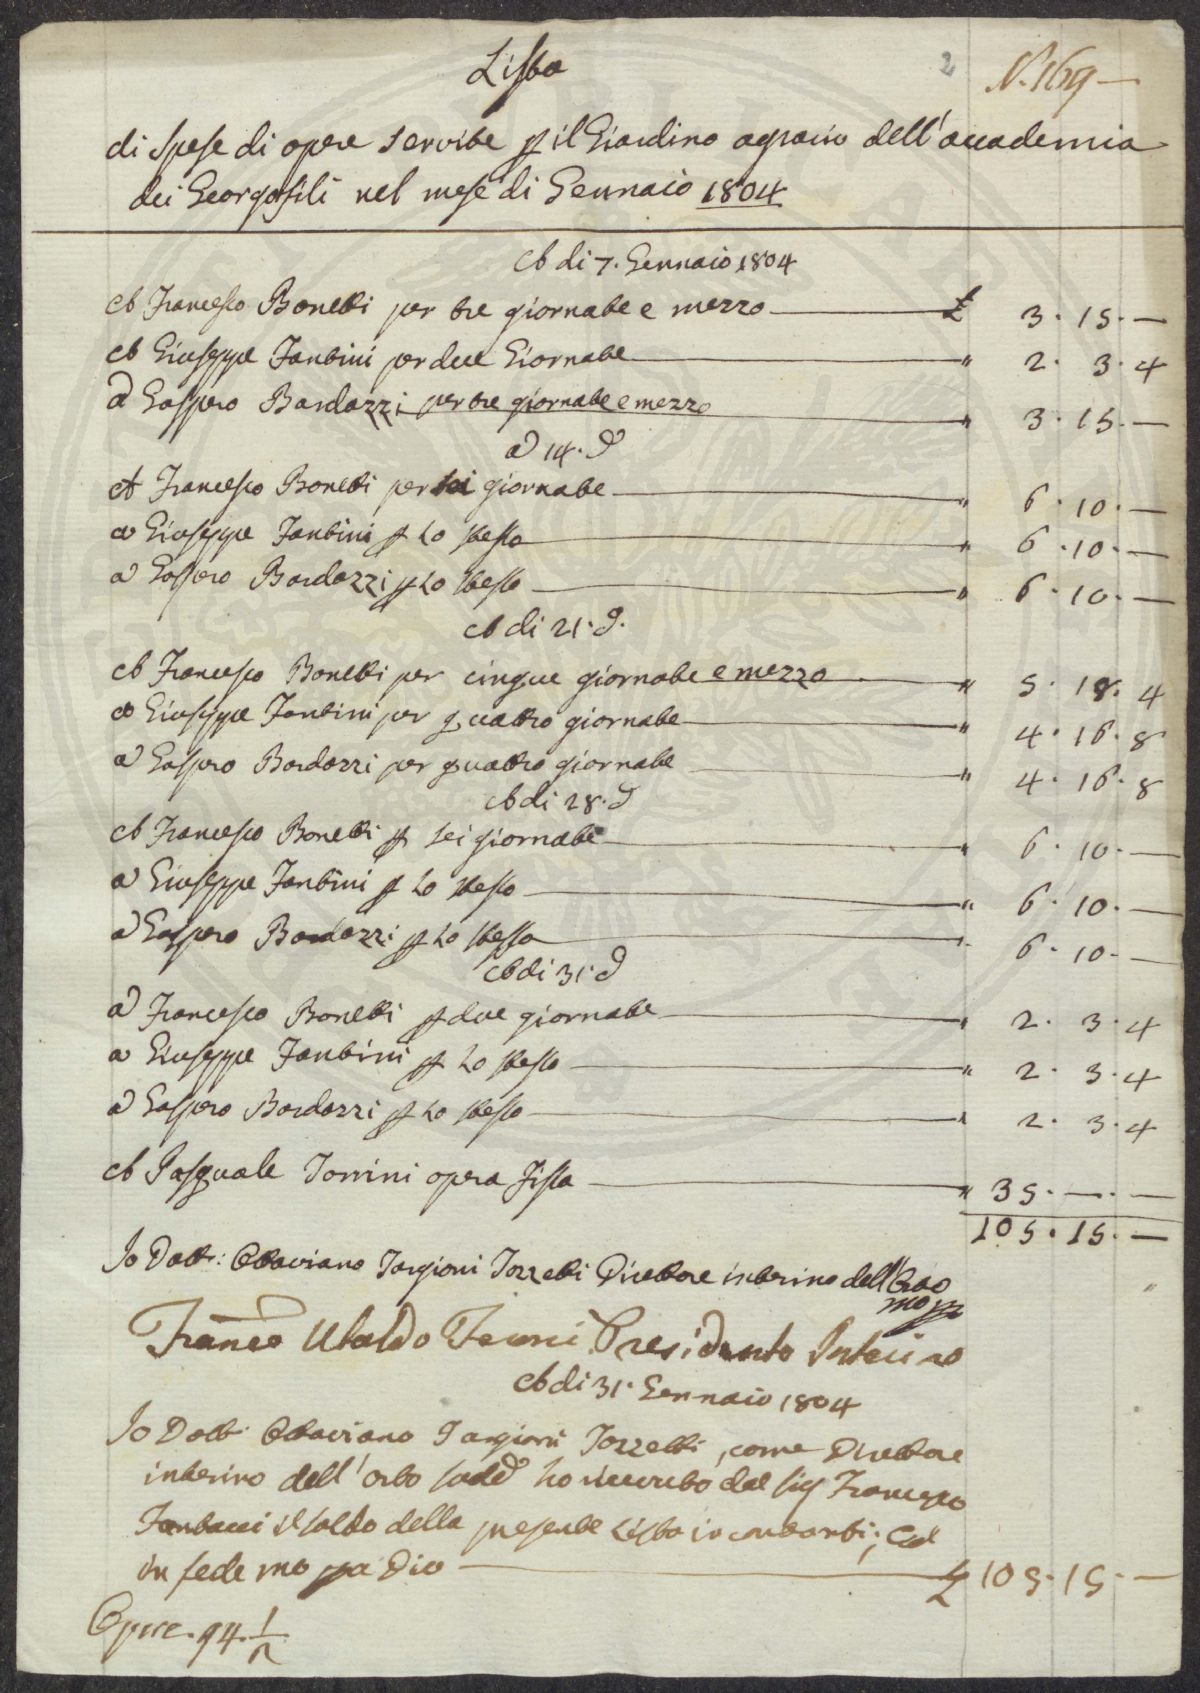 Lista
2
N. 169 —
di Spese di opere servite p il Giardino agrario dell'accademia
dei Georgofili nel mese di Gennaio 1804
A di 7. Gennaio 1804
A Francesco Bonetti per tre giornate e mezzo — £ 3. 15. —
A Giuseppe Fantini per due Giornate — " 2. 3. 4
a Gaspero Bardazzi per tre giornate e mezzo — " 3. 15. —
a 14. d
A Francesco Bonetti per sei giornate — " 6. 10. —
a Giuseppe Fantini p Lo stesso — " 6. 10. —
a Gaspero Bardazzi p Lo stesso — " 6. 10. —
A di 21. d.
A Francesco Bonetti per cinque giornate e mezzo — " 5. 18. 4
a Giuseppe Fantini per quattro giornate — " 4. 16. 8
a Gaspero Bardazzi per quattro giornate — " 4. 16. 8
A di 28. d
A Francesco Bonetti p sei giornate — " 6. 10. —
a Giuseppe Fantini p Lo stesso — " 6. 10. —
a Gaspero Bardazzi p Lo stesso — " 6. 10. —
A di 31. d
a Francesco Bonetti p due giornate — " 2. 3. 4
a Giuseppe Fantini p Lo stesso — " 2. 3. 4
a Gaspero Bardazzi p Lo stesso — " 2. 3. 4
A Pasquale Torrini opera fissa — " 35. —. —
105. 15. —
Io Dott: Ottaviano Targioni Tozzetti Direttore interino dell'Orto
mo pp
Franco Ubaldo Feroni Presidente Interino
A di 31. Gennaio 1804
Io Dott. Ottaviano Targioni Tozzetti, come Direttore
interino dell'orto sudd ho ricevuto dal Sig Francesco
il saldo della presente Lista in contanti; ed
in fede mo ppa Dio — £ 105. 15. —
Opere. 94. 1/2